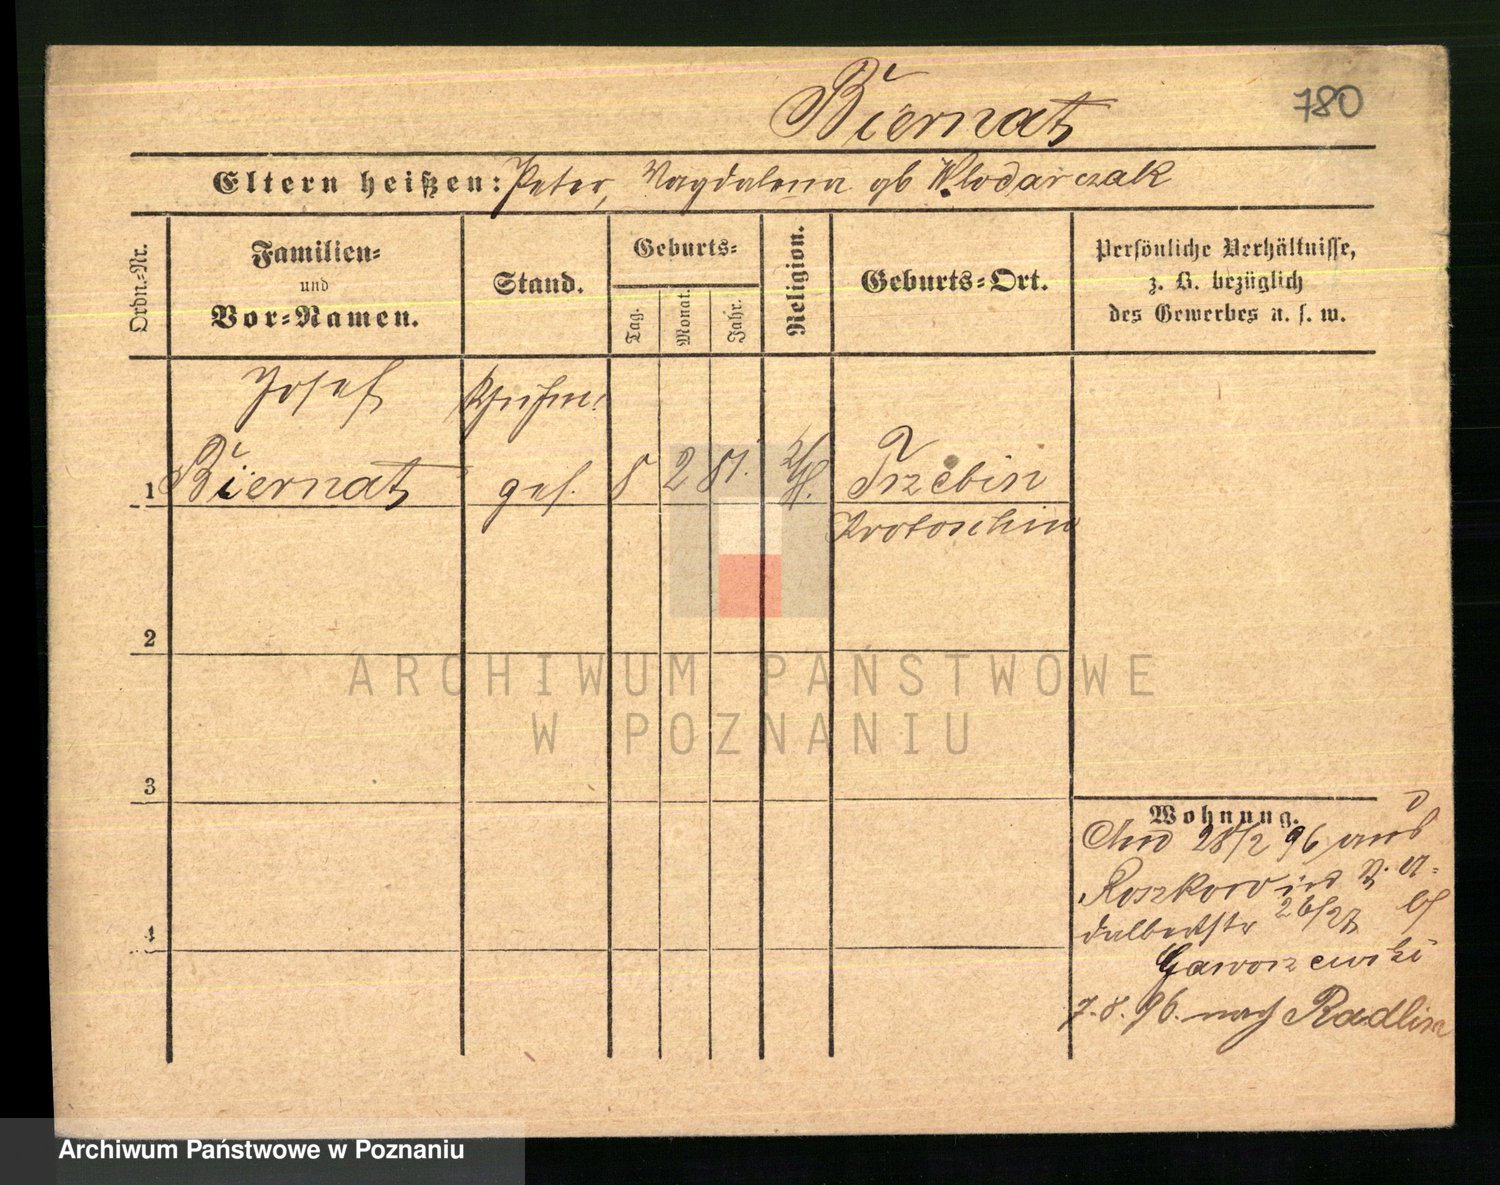 Biernat
780
Eltern heißen: Peter, Magdalena gb Wlodarczak
Ordn.-Nr.
Familien-
und
Vor-Namen.
Stand.
Geburts-
Tag.
Monat.
Jahr.
Religion.
Geburts-Ort.
Persönliche Verhältnisse,
z. B. bezüglich
des Gewerbes u. s. w.
Josef
1 Biernat
ges. 8 2 81.
Trzebin
Krotoschin
2
3
4
Wohnung.
28/2 96 aus
Roszkow in
26/27 bei
7.8.96. nach Radlin
ARCHIWUM PAŃSTWOWE
W POZNANIU
Archiwum Państwowe w Poznaniu